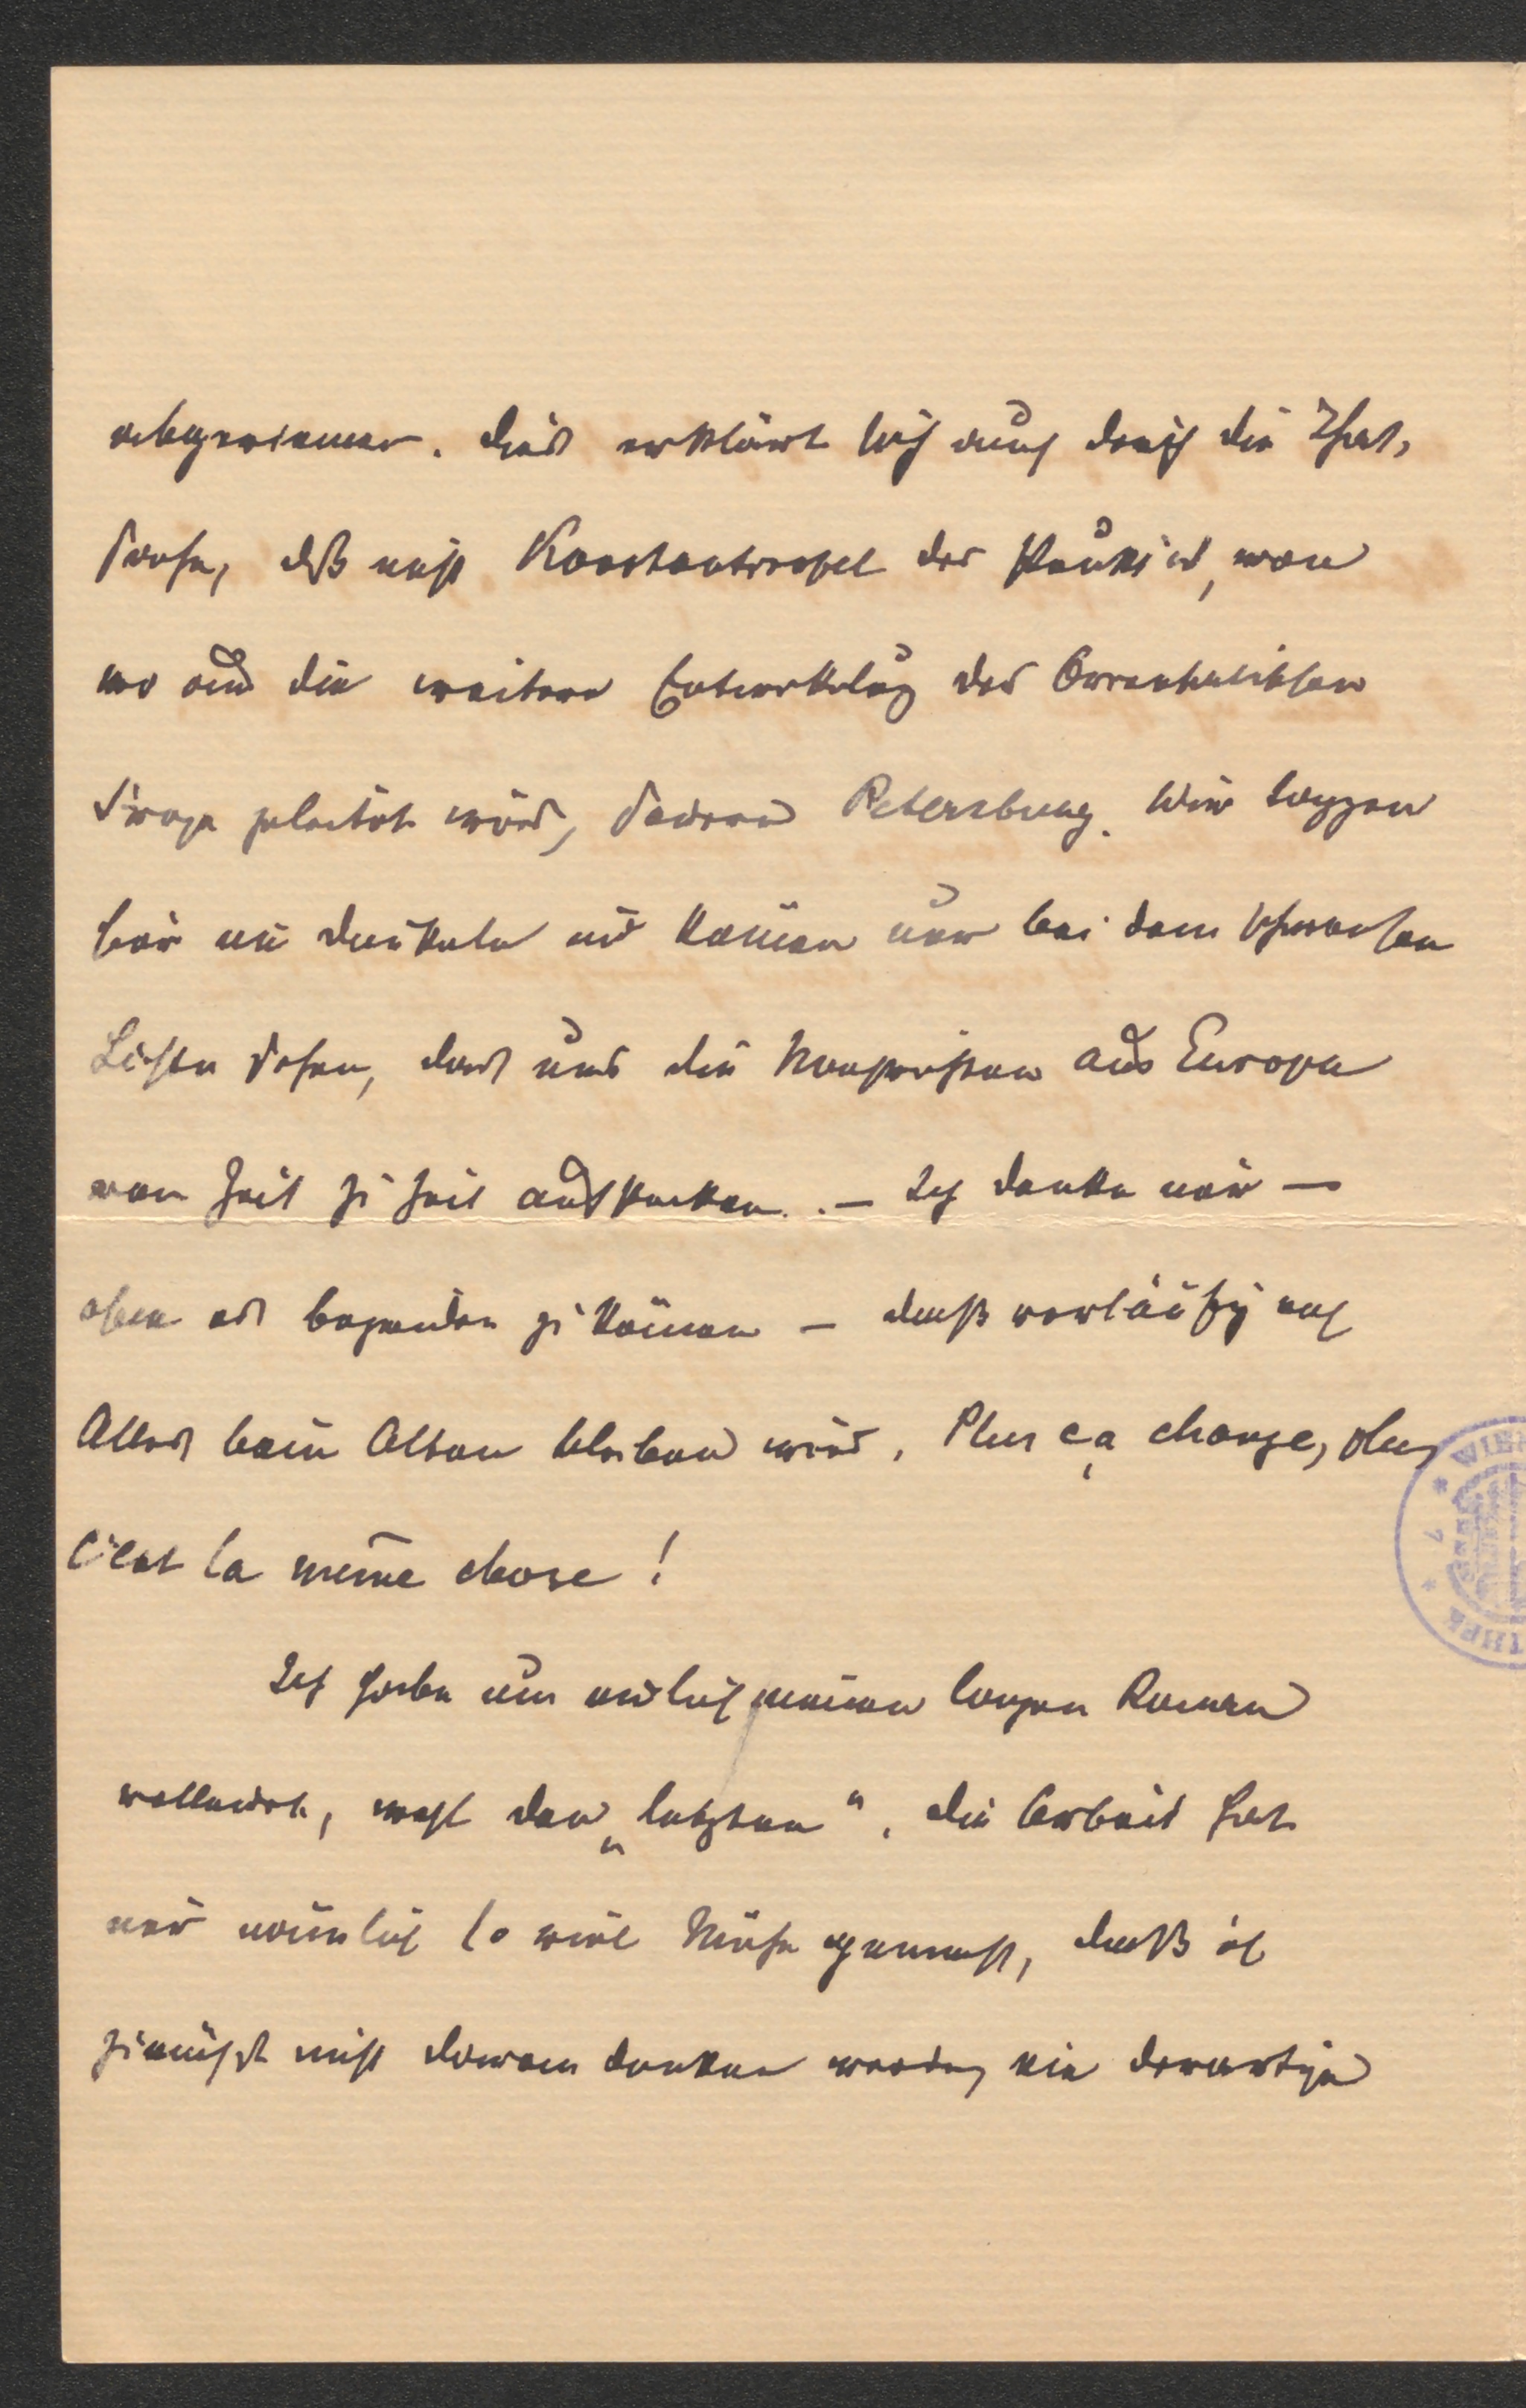 abgewinnen. Dies erklärt sich auch durch die That-
sache, daß nicht Konstantinopel der Punkt ist, von
wo aus die weitere Entwicklung der Orientalischen
Frage geleitet wird, sondern Petersburg. Wir tappen
hier im Dunkeln und können nur bei dem schwachen
Lichte sehen, das uns die Nachrichten aus Europa
von Zeit zu Zeit aufstecken. – Ich denke mir –
ohne es begründen zu können – daß vorläufig noch
Alles beim Alten bleiben wird. Plus ça change, plus
c'est la même chose!
Ich habe nun endlich meinen langen Roman
vollendet, wohl den „letzten“. Die Arbeit hat
mir nämlich so viel Mühe gemacht, daß ich
zunächst nicht daran denken werde, eine derartige
WIEN